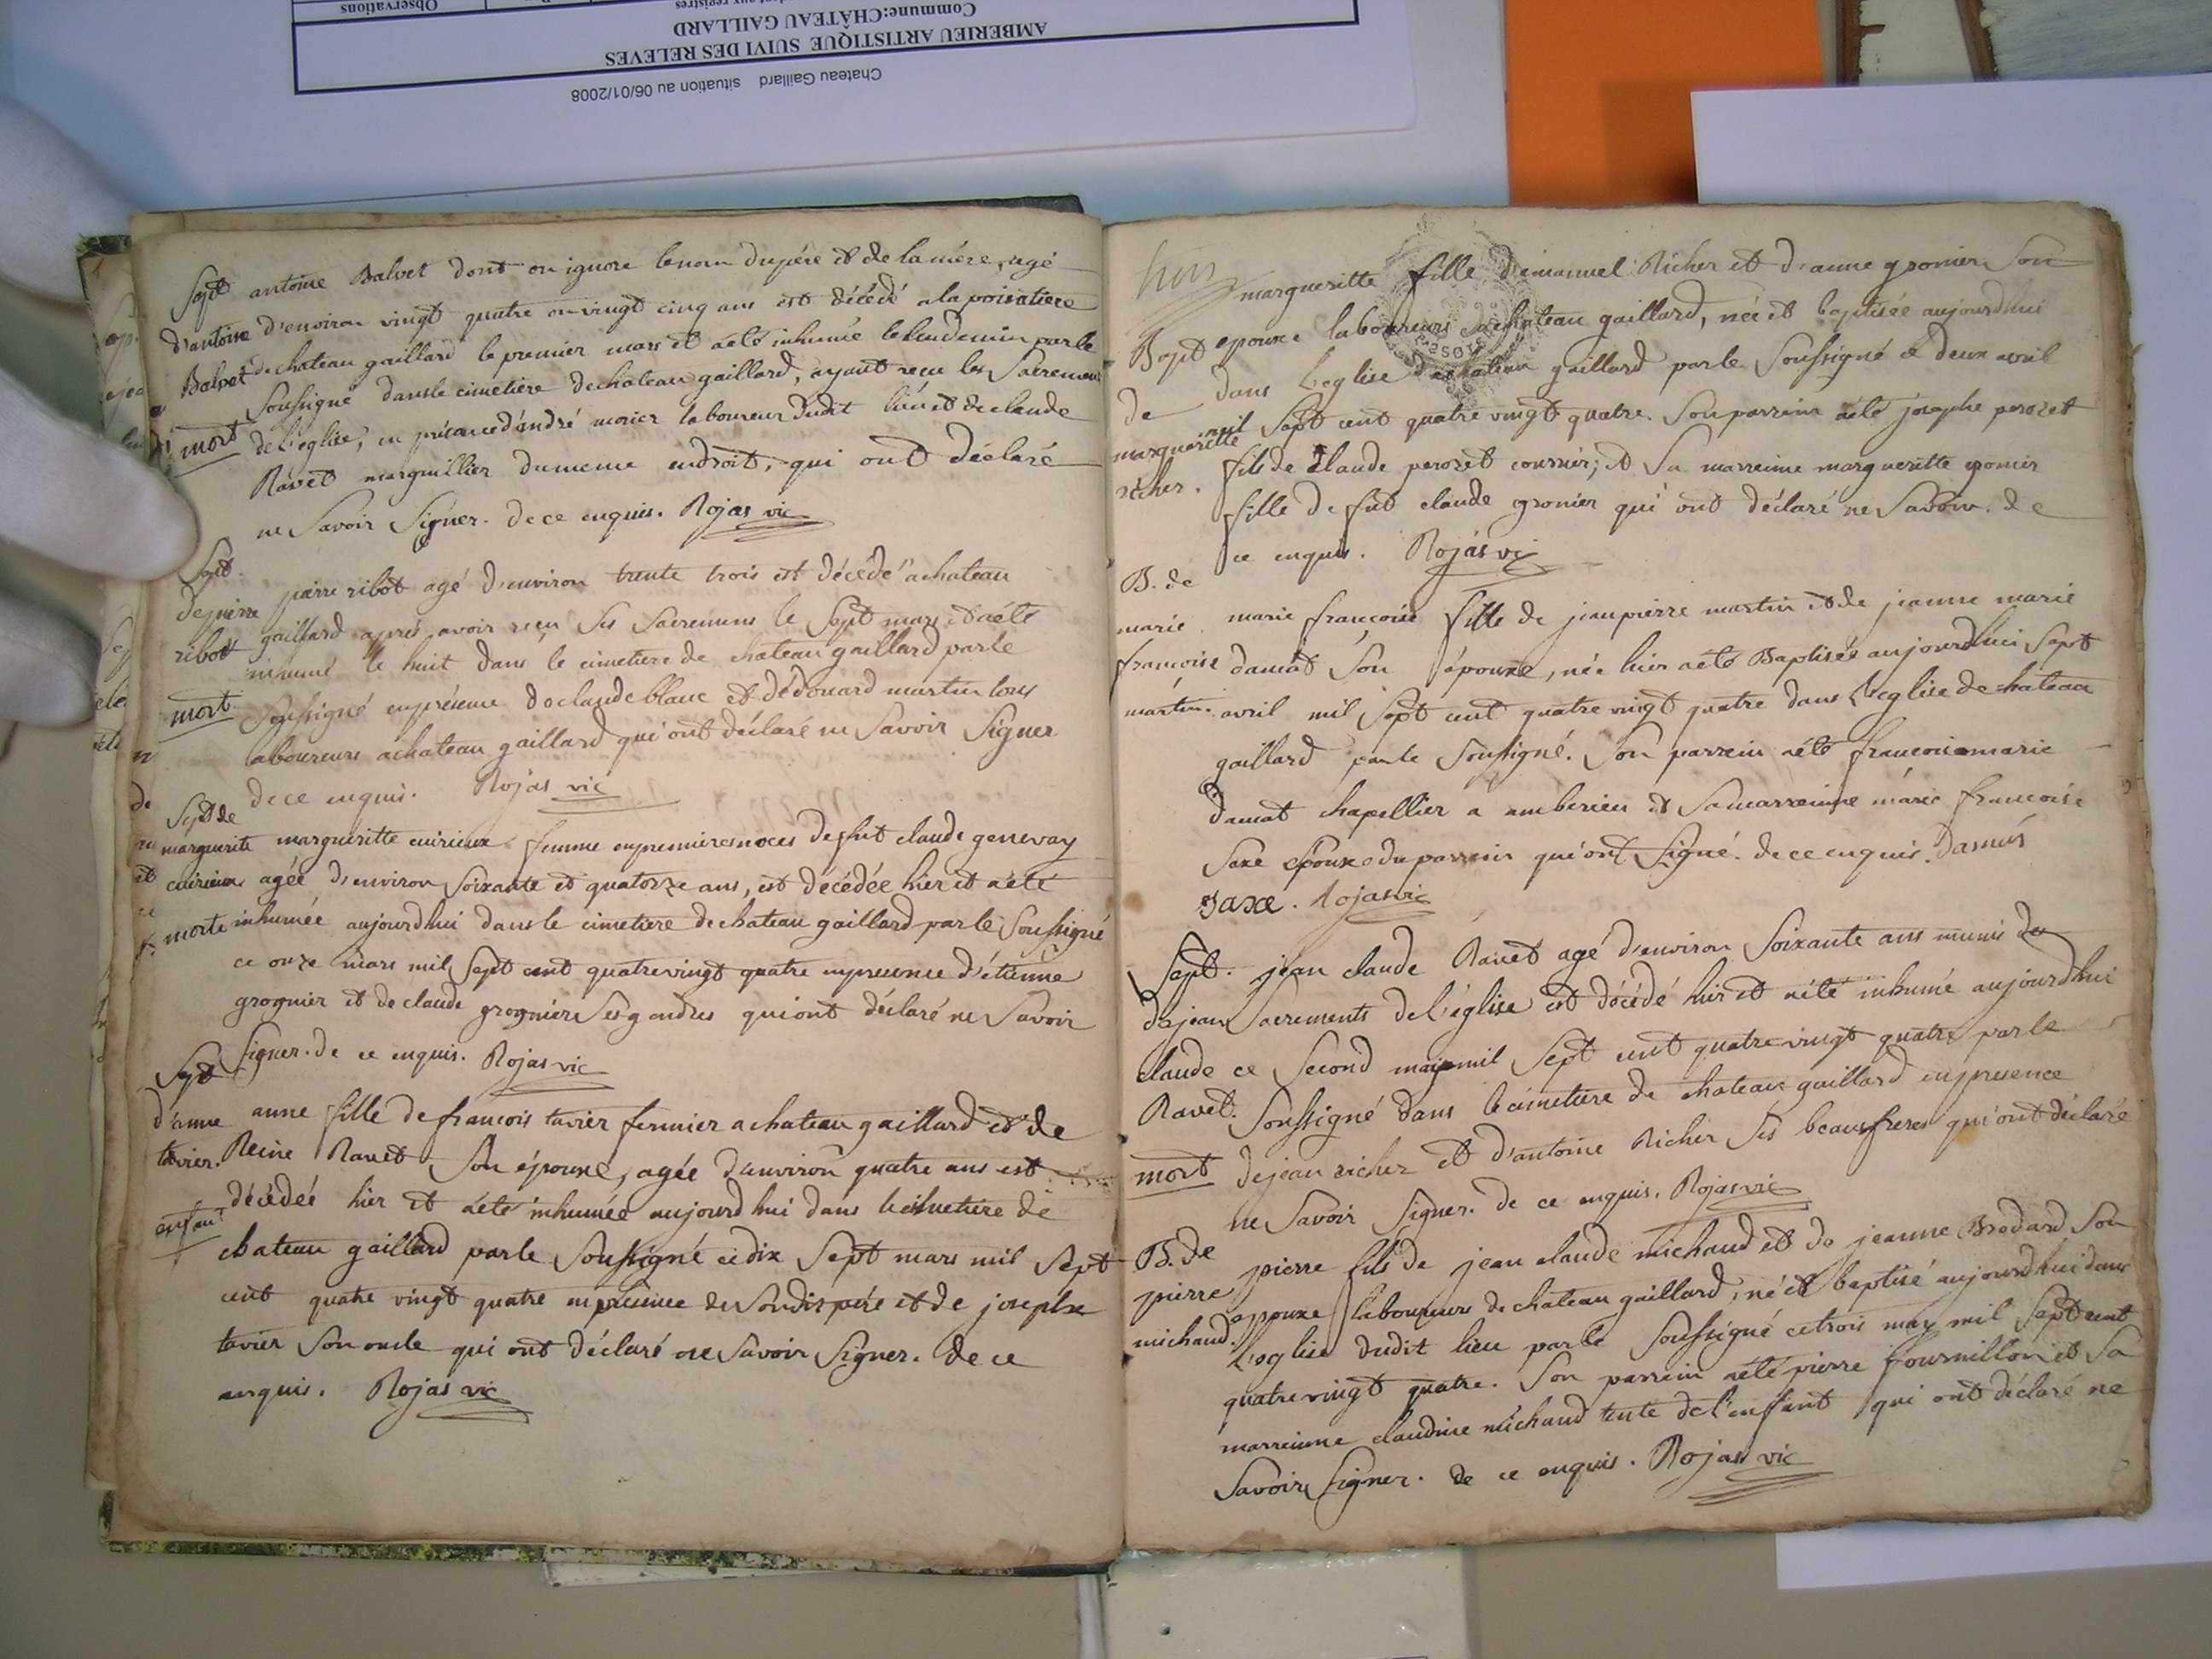 Observations
Commune:CHÂTEAU GAILLARD
AMBERIEU ARTISTIQUE SUIVI DES RELEVES
Chateau Gaillard situation au 06/01/2008
Sept antoine Balvet dont on ignore le nom du pére et de la mére, agé
d'antoine d'environ vingt quatre ou vingt cinq ans est décédé a la
Balvet de chateau gaillard le premier mars et aété inhumé le lendemin par le
Soussigné dans le cimetiere de chateau gaillard, ayant recu les Sacremens
mort de l'eglise, en présence d'andré monier laboureur dudit lieu et de claude
Ravet marguillier du meme endroit, qui ont déclaré
ne Savoir Signer. de ce enquis. Rojas vic
Sept.
de pierre pierre ribot agé d'environ trente trois est décédé a chateau
ribot gaillard aprés avoir recu Ses Sacremens le Sept mars et aété
inhumé le huit dans le cimetiere de chateau gaillard par le
mort Soussigné en présence de claude blanc et d'édouard martin tous
laboureurs a chateau gaillard qui ont déclaré ne Savoir Signer
de ce enquis. Rojas vic
Sept de
marguerite margueritte cuirieux femme en premieres noces de fut claude genevay
cuirieux agée d'environ Soixante et quatorze ans, est décédée hier et aété
morte inhumée aujourdhui dans le cimetiere de chateau gaillard par le Soussigné
ce onze mars mil Sept cent quatre vingt quatre en presence d'étienne
grognier et de claude grognier Ses gendres qui ont déclaré ne Savoir
Signer. de ce enquis. Rojas vic
Sept
d'anne anne fille de francois tavier fermier a chateau gaillard et de
tavier. Reine Ravet Son épouxe, agée d'environ quatre ans est
décédée hier et aété inhumée aujourdhui dans le cimetiere de
enfant
chateau gaillard par le Soussigné ce dix Sept mars mil Sept
cent quatre vingt quatre en presence de Sondit pére et de josephe
tavier Son oncle qui ont déclaré ne Savoir Signer. de ce
enquis. Rojas vic
margueritte fille d'emanuel Richer et d'anne gronier Son
Bapt epouxe laboureurs a chateau gaillard, née et baptisée aujourdhui
de dans l'eglise de chateau gaillard par le Soussigné ce deux avril
margueritte mil Sept cent quatre vingt quatre. Son parrein aété josephe perozet
richer. fils de claude perozet ; et Sa marreinne margueritte gronier
fille de fut claude gronier qui ont déclaré ne Savoir. de
ce enquis. Rojas vic
B. de
marie marie francoise fille de jean pierre martin et de jeanne marie
francoise damat Son épouxe, née hier aété Baptisée aujourdhui Sept
martin. avril mil Sept cent quatre vingt quatre dans l'eglise de chateau
gaillard par le Soussigné. Son parrein aété francois marie
damat chapellier a amberieu et Sa marreinne marie francoise
Saxe epouxe du parrein qui ont Signé. de ce enquis.
Saxe. Rojas vic
Sept. jean claude Ravet agé d'environ Soixante ans munis des
de jean Sacrements de l'église est décédé hier et aété inhumé aujourdhui
claude ce Second may mil Sept cent quatre vingt quatre par le
Ravet. Soussigné dans le cimetiere de chateau gaillard en presence
mort de jean richer et d'antoine Richer Ses beaux freres qui ont déclaré
ne Savoir Signer. de ce enquis. Rojas vic
B. de
pierre pierre fils de jean claude michaud et de jeanne Brodard Son
michaud. epouxe laboureurs de chateau gaillard, né et baptisé aujourdhui dans
l'eglise dudit lieu par le Soussigné ce trois may mil Sept cent
quatre vingt quatre. Son parrein aété pierre fournillon et Sa
marreinne claudine michaud tente de l'enfant qui ont déclaré ne
Savoir Signer. de ce enquis. Rojas vic